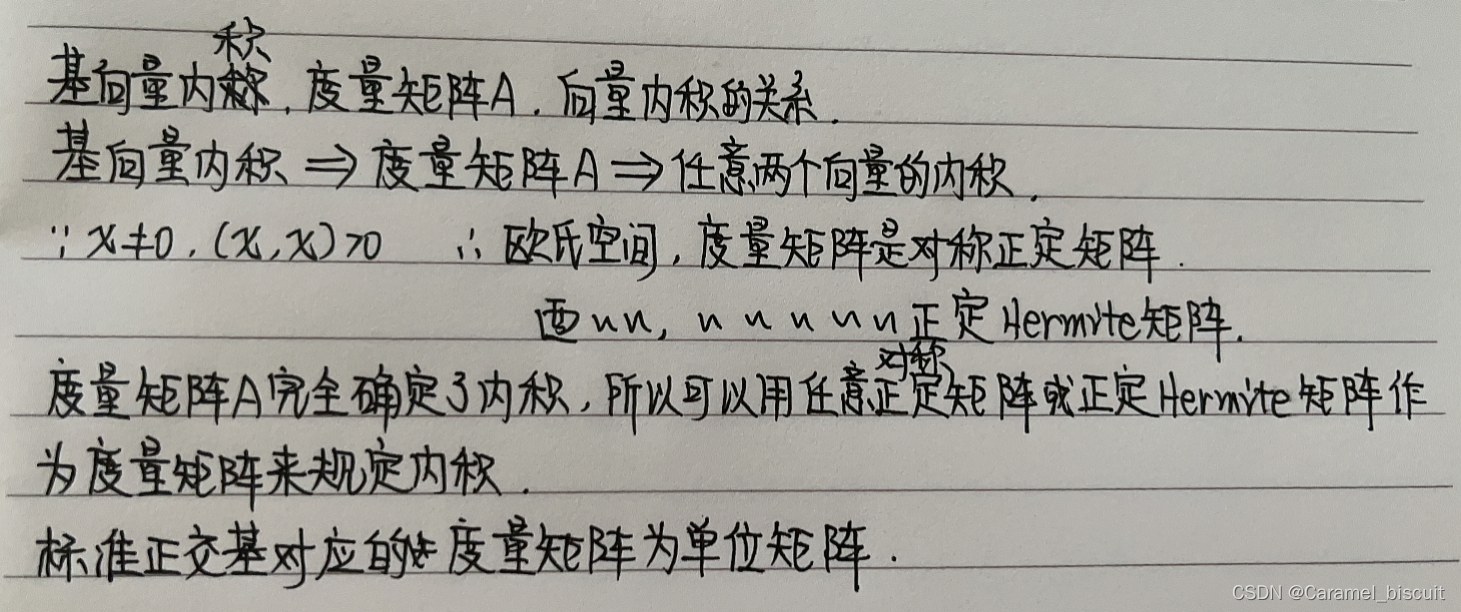 基向量内积,度量矩阵A.向量内积的关系.
基向量内积 ⇒ 度量矩阵A ⇒ 任意两个向量的内积.
∵ x≠0,(x,x)>0 ∴ 欧氏空间,度量矩阵是对称正定矩阵.
酉〃〃,〃〃〃〃〃正定Hermite矩阵.
度量矩阵A完全确定了内积,所以可以用任意对称正定矩阵或正定Hermite矩阵作
为度量矩阵来规定内积.
标准正交基对应的度量矩阵为单位矩阵.
CSDN @Caramel_biscuit